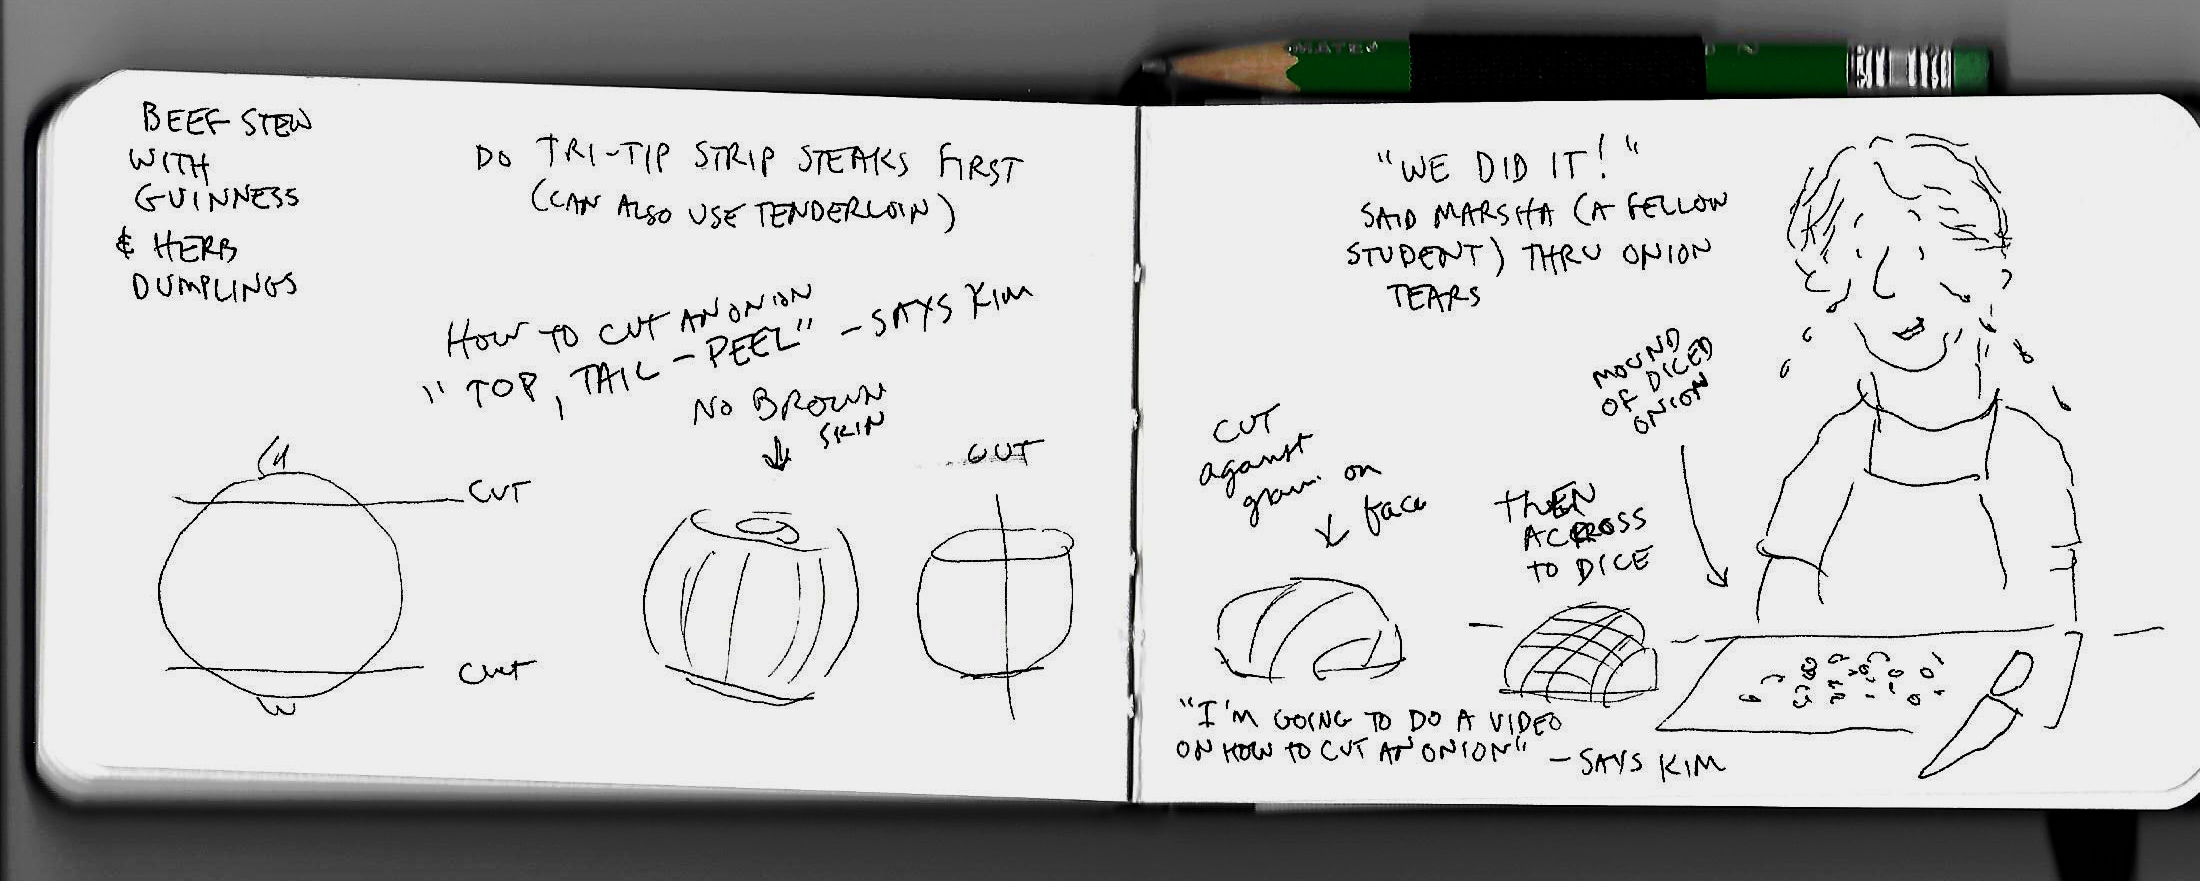 BEEF STEW
WITH
GUINNESS
& HERB
DUMPLINGS
DO TRI-TIP STRIP STEAKS FIRST
(CAN ALSO USE TENDERLOIN)
HOW TO CUT AN ONION
"TOP, TAIL - PEEL" - SAYS KIM
NO BROWN
SKIN
CUT
CUT
CUT
"WE DID IT!"
SAID MARSHA (A FELLOW
STUDENT) THRU ONION
TEARS
MOUND
OF DICED
ONION
CUT
against
grain on
face
THEN
ACCROSS
TO DICE
"I'M GOING TO DO A VIDEO
ON HOW TO CUT AN ONION"
- SAYS KIM